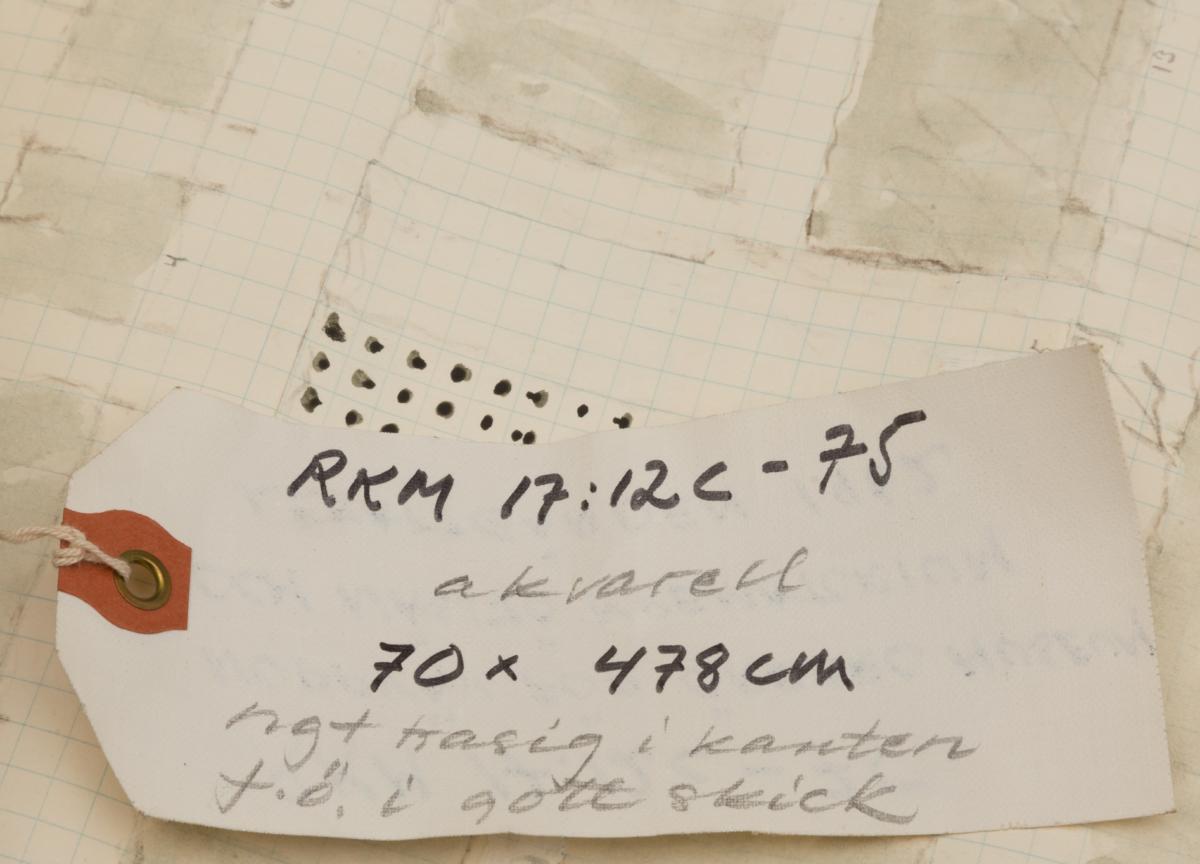 13
4
RKM 17:12C - 75
akvarell
70 x 478 cm
ngt trasig i kanten
f.ö. i gott skick